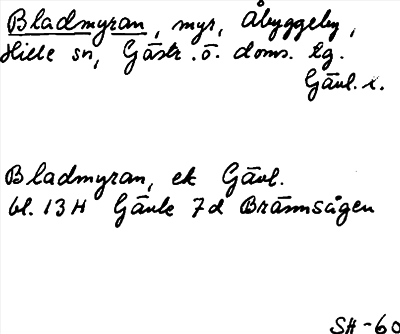 Bladmyran, myr, Åbyggeby,
Hille sn, Gästr. ö. doms. tg.
Gävl. l.
Bladmyran, ek Gävl.
bl. 13 H Gävle 7d Brännsågen
SH-60